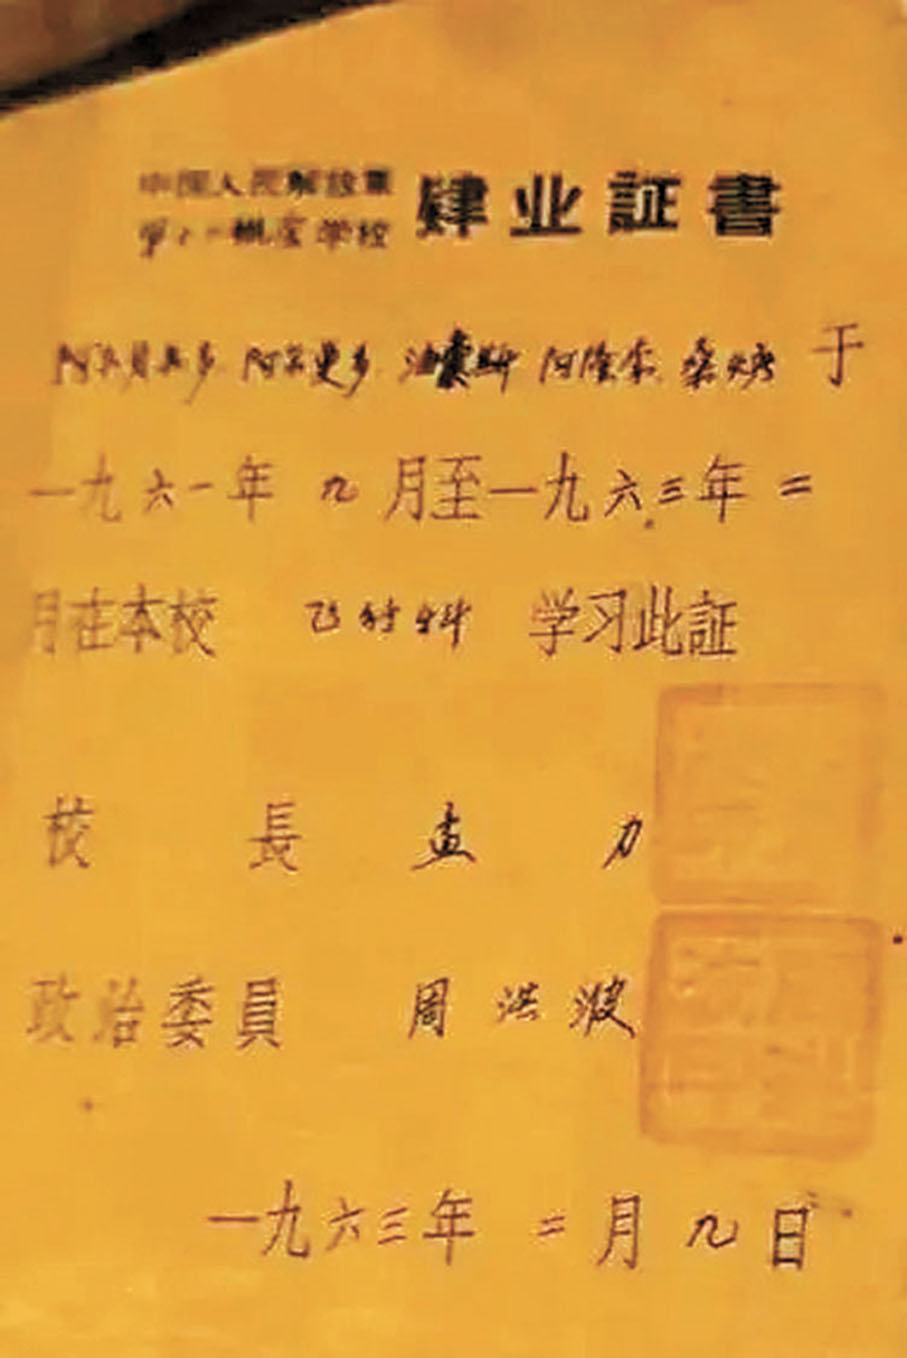 中国人民解放軍 肄业証書
航空学校
于
一九六一年 九 月至一九六三年 二
月在本校 飞行科 学习此証
校 長 孟 力
政治委員 周 洪 波
一九六三年 二 月 九 日